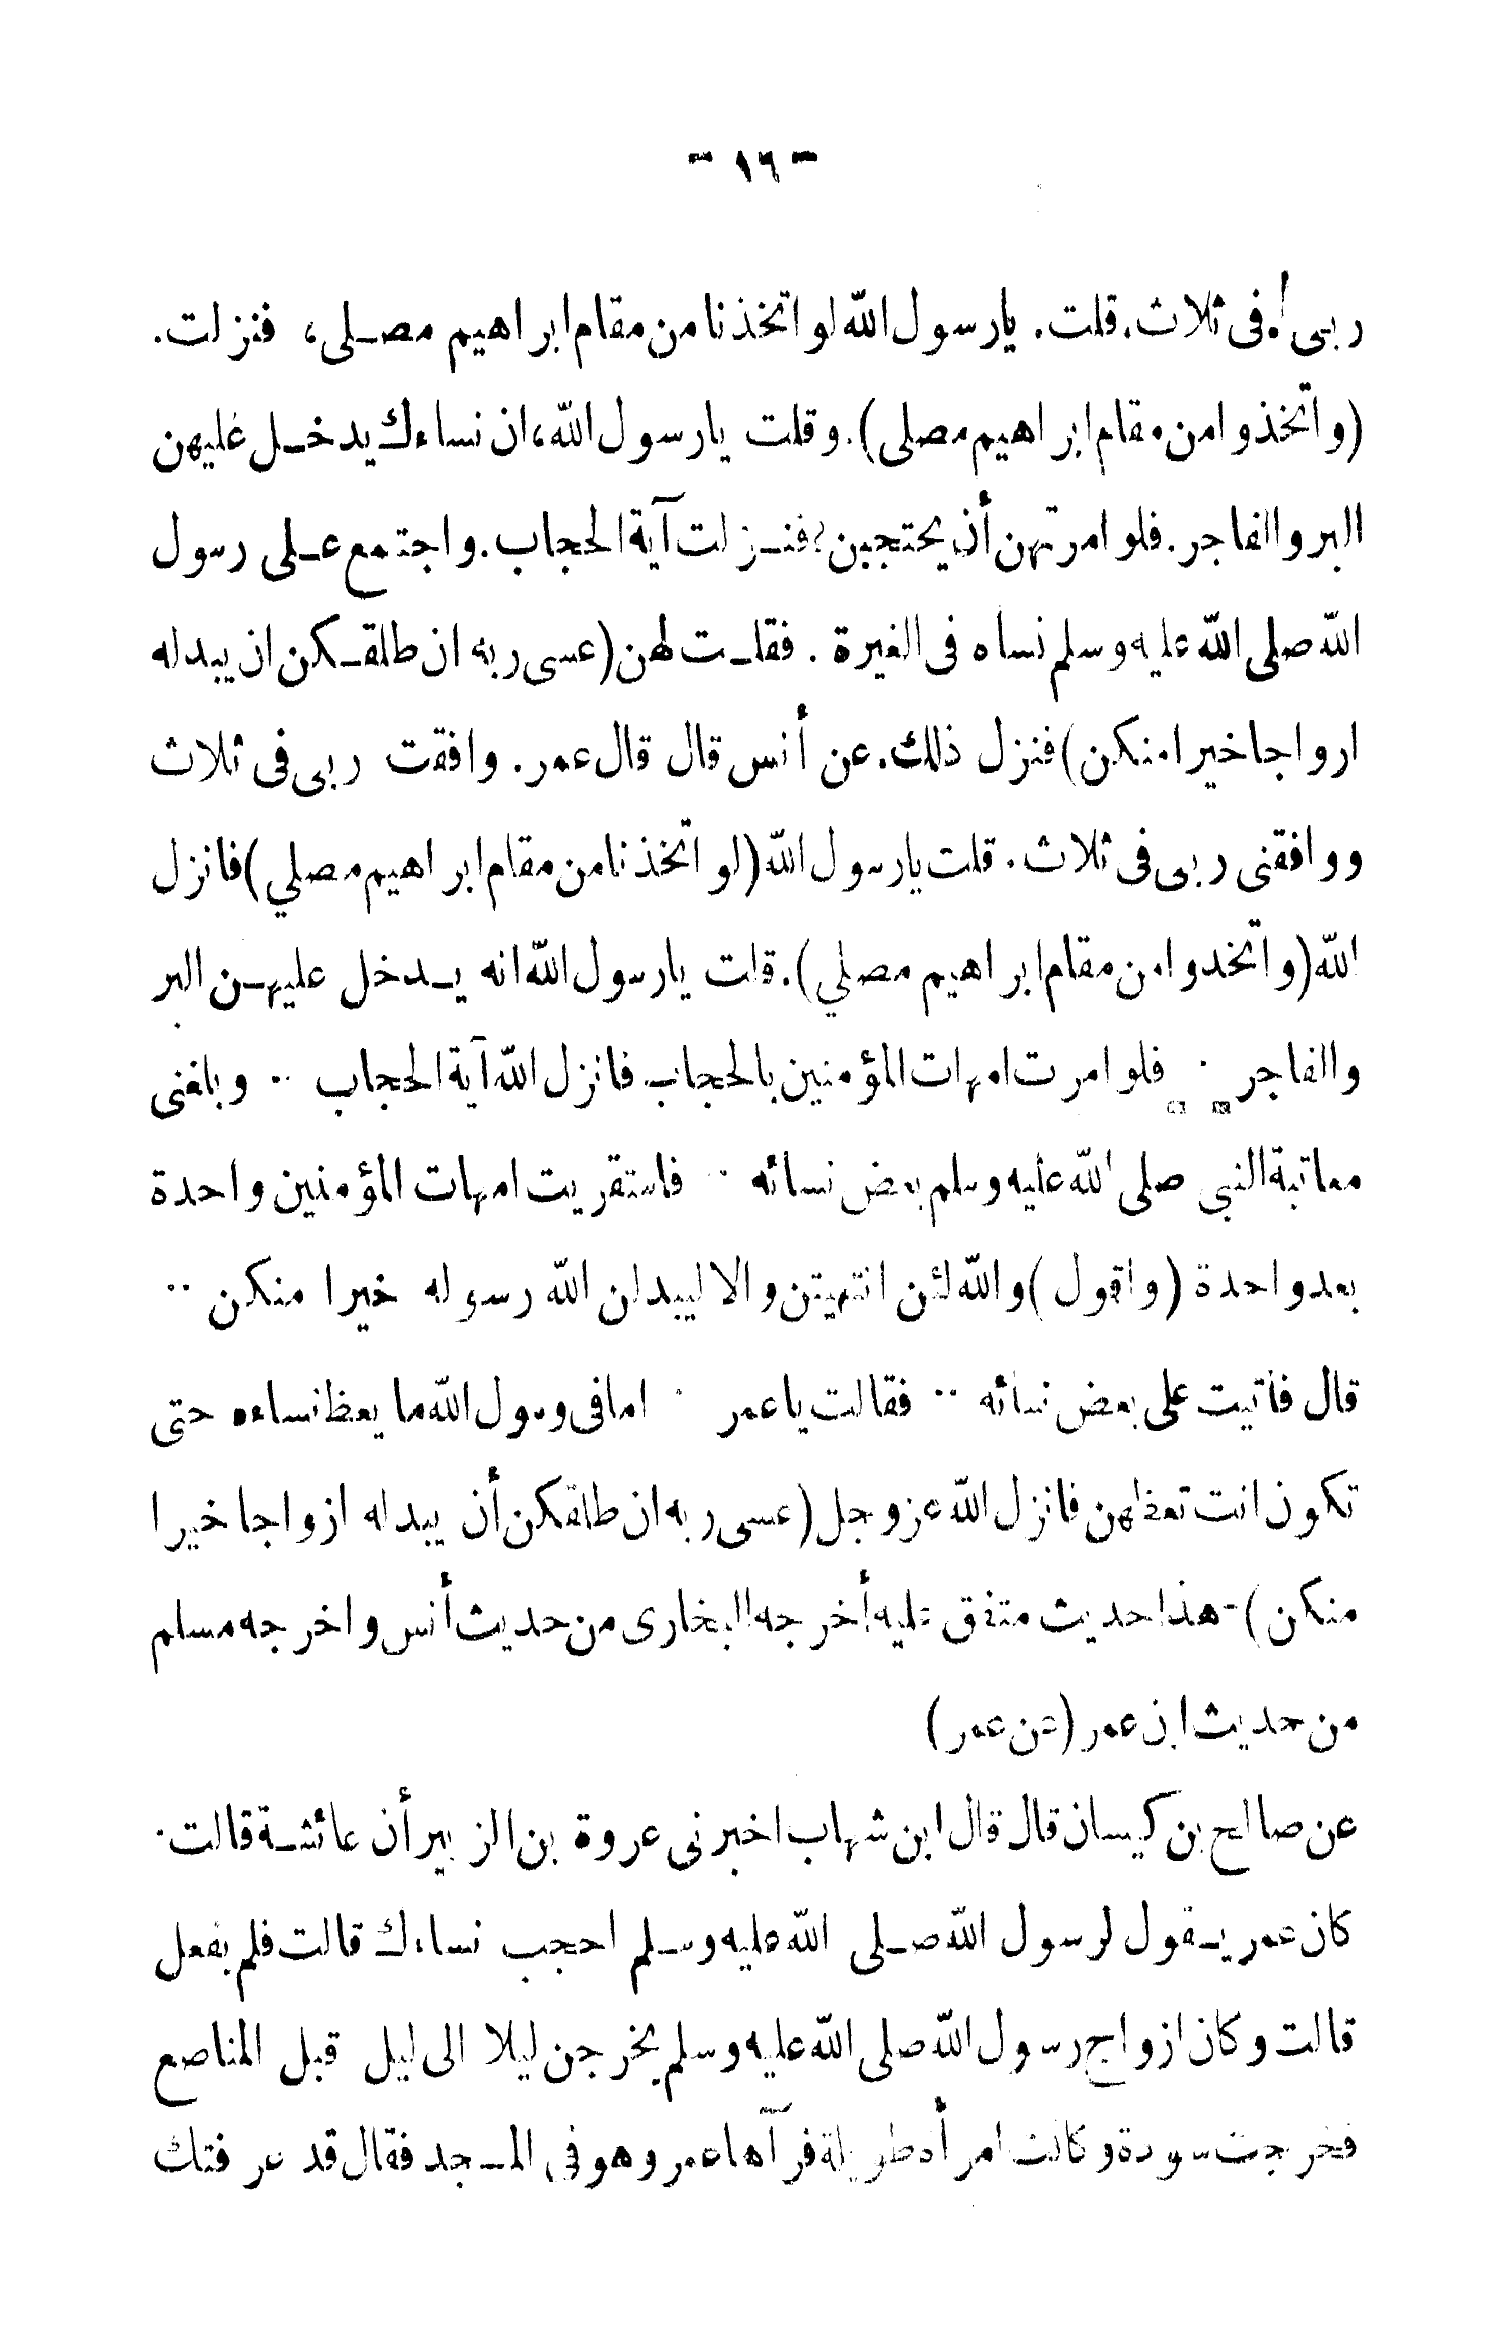 - ١٦ -
ربى فى ثلاث. قلت. يارسول الله لو اتخذنا من مقام ابراهيم مصلى، فنزلت.
(واتخذوا من مقام ابراهيم مصلى). وقلت يارسول الله، ان نساءك يدخل عليهن
البر والفاجر. فلو امرتهن أن يحتجبن؟ فنزلت آية الحجاب. واجتمع على رسول
الله صلى الله عليه وسلم نساه فى الغيرة . فقلت لهن (عسى ربه ان طلقكن ان يبدله
ارواجا خيرا منكن) فنزل ذلك. عن أنس قال قال عمر. وافقت ربى فى ثلاث
ووافقنى ربى فى ثلاث. قلت يارسول الله (لو اتخذنا من مقام ابراهيم مصلي) فانزل
الله (واتخدوا من مقام ابراهيم مصلي). قلت يارسول الله انه يدخل عليهن البر
والفاجر . فلو امرت امهات المؤمنين بالحجاب. فانزل الله آية الحجاب .. وبلغنى
معاتبة النبى صلى الله عليه وسلم بعض نسائه .. فاستقريت امهات المؤمنين واحدة
بعد واحدة (واقول) والله لئن انتهيتن والا ليبدلن الله رسوله خيرا منكن ..
قال فأتيت على بعض نسائه .. فقالت ياعمر . امافى رسول الله ما يعظ نساءه حتى
تكون انت تعظهن فانزل الله عز وجل (عسى ربه ان طلقكن أن يبدله ازواجا خيرا
منكن) - هذا حديث متفق عليه أخرجه البخارى من حديث أنس واخرجه مسلم
من حديث ابن عمر (عن عمر)
عن صالح بن كيسان قال قال ابن شهاب اخبرنى عروة بن الزبير أن عائشة قالت.
كان عمر يقول لرسول الله صلى الله عليه وسلم احجب نساءك قالت فلم يفعل
قالت وكان ازواج رسول الله صلى الله عليه وسلم يخرجن ليلا الى ليل قبل المناصع
فخرجت سودة وكانت امرأة طويلة فرآها عمر وهو فى المسجد فقال قد عرفتك